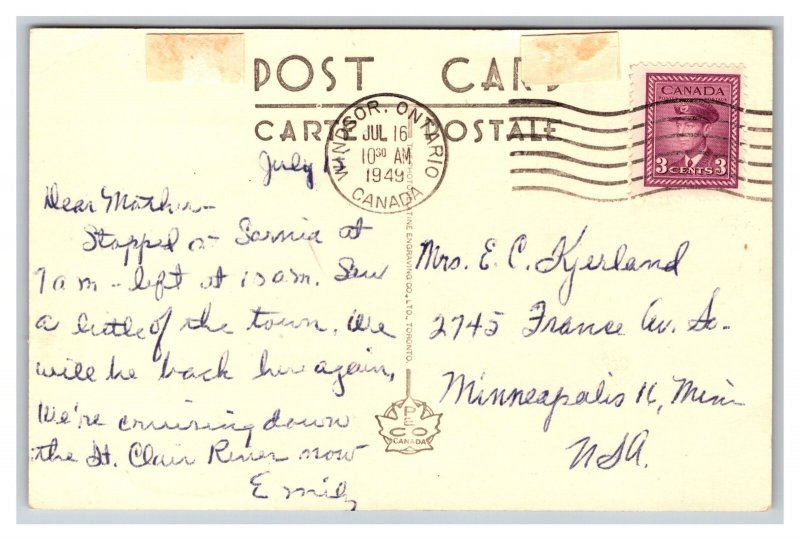 POST CARD
CARTE POSTALE
WINDSOR, ONTARIO
JUL 16
10 30 AM
1949
CANADA
CANADA
3 CENTS 3
July
Dear Mother-
Stopped at Sarnia at
7 am - left at 10 am. Saw
a little of the town. We
will be back here again.
We're cruising down
the St. Clair River now
Emily
Mrs. E. C. Kjerland
2745 France Av. So.
Minneapolis 16, Minn
USA.
ENGRAVING CO., LTD., TORONTO.
PECO
CANADA